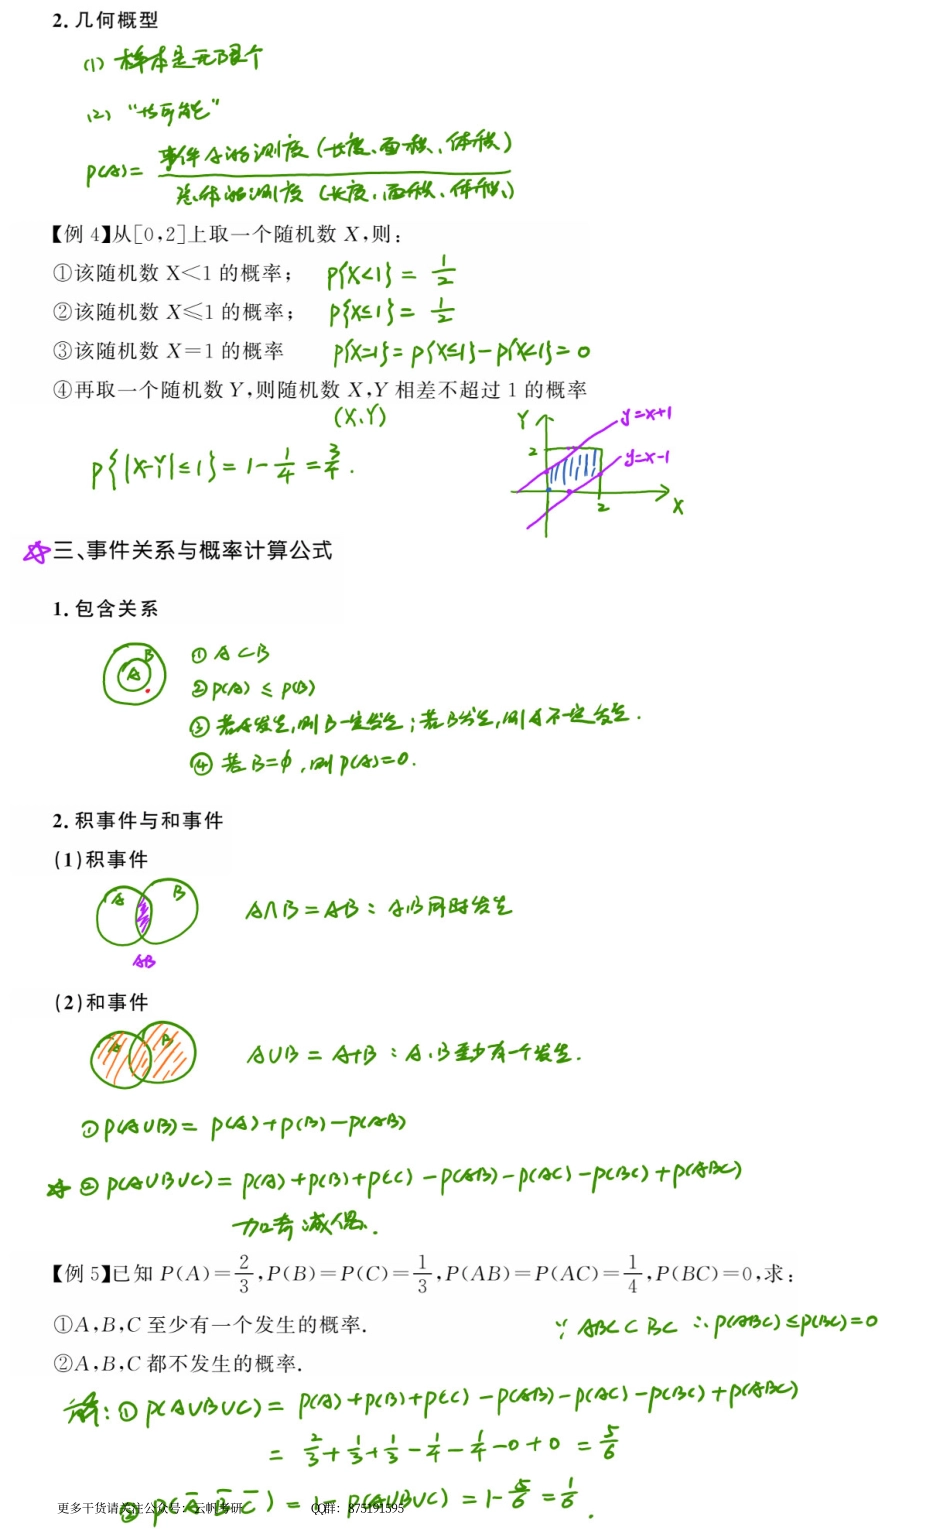 2. 几何概型
(1) 样本是无限个
(2) “均可能”
P(A)= 事件A的测度(长度、面积、体积)
总体的测度(长度、面积、体积)
【例 4】从[0,2]上取一个随机数 X,则:
①该随机数 X<1 的概率; P{X<1} = 1/2
②该随机数 X≤1 的概率; P{X≤1} = 1/2
③该随机数 X=1 的概率 P{X=1} = P{X≤1}-P{X<1} = 0
④再取一个随机数 Y,则随机数 X,Y 相差不超过 1 的概率
(X,Y)
Y
y=x+1
2
y=x-1
P{|X-Y|≤1} = 1-1/4 = 3/4.
2
X
三、事件关系与概率计算公式
1. 包含关系
B
A
① A⊂B
② P(A) ≤ P(B)
③ 若A发生,则B一定发生;若B发生,则A不一定发生.
④ 若B=ϕ,则P(A)=0.
2. 积事件与和事件
(1)积事件
A B
A∩B = AB : A,B同时发生
AB
(2)和事件
A B
A∪B = A+B : A,B至少有一个发生.
① P(A∪B) = P(A)+P(B)-P(AB)
☆ ② P(A∪B∪C) = P(A)+P(B)+P(C)-P(AB)-P(AC)-P(BC)+P(ABC)
加奇减偶.
【例 5】已知 P(A)=2/3,P(B)=P(C)=1/3,P(AB)=P(AC)=1/4,P(BC)=0,求:
①A,B,C 至少有一个发生的概率. ∵ ABC⊂BC ∴ P(ABC)≤P(BC)=0
②A,B,C 都不发生的概率.
解: ① P(A∪B∪C) = P(A)+P(B)+P(C)-P(AB)-P(AC)-P(BC)+P(ABC)
= 2/3+1/3+1/3-1/4-1/4-0+0 = 5/6
② P(A̅ B̅ C̅) = 1-P(A∪B∪C) = 1-5/6 = 1/6.
更多干货请关注公众号:云帆考研 QQ群:875191595